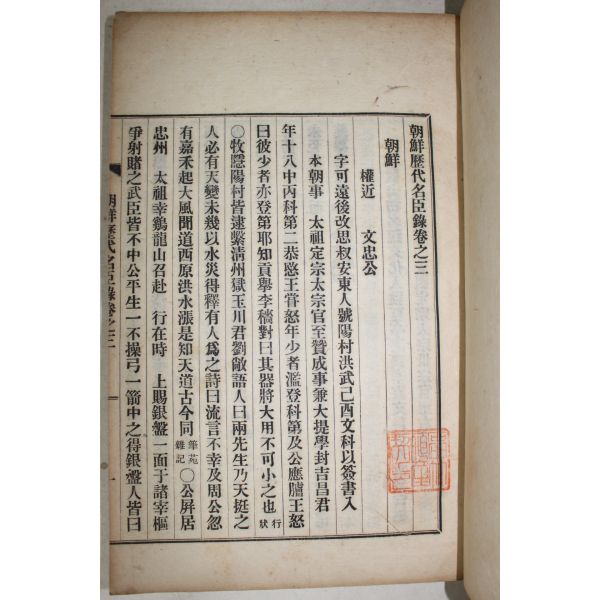 朝鮮歷代名臣錄卷之三
朝鮮
權近　文忠公
字可遠後改思叔安東人號陽村洪武己酉文科以簽書入
本朝事　太祖定宗太宗官至贊成事兼大提學封吉昌君
年十八中丙科第二恭愍王甞怒年少者濫登科第及公應臚王怒
曰彼少者亦登第耶知貢擧李穡對曰其器將大用不可小之也行狀
〇牧隱陽村皆逮繫淸州獄玉川君劉敞語人曰兩先生乃天挺之
人必有天變未幾以水災得釋有人爲之詩曰流言不幸及周公忽
有嘉禾起大風聞道西原洪水漲是知天道古今同筆苑雜記〇公屛居
忠州　太祖幸鷄龍山召赴　行在時　上賜銀盤一面于諸宰樞
爭射賭之武臣皆不中公平生一不操弓一箭中之得銀盤人皆曰
朝鮮歷代名臣錄卷之三　一